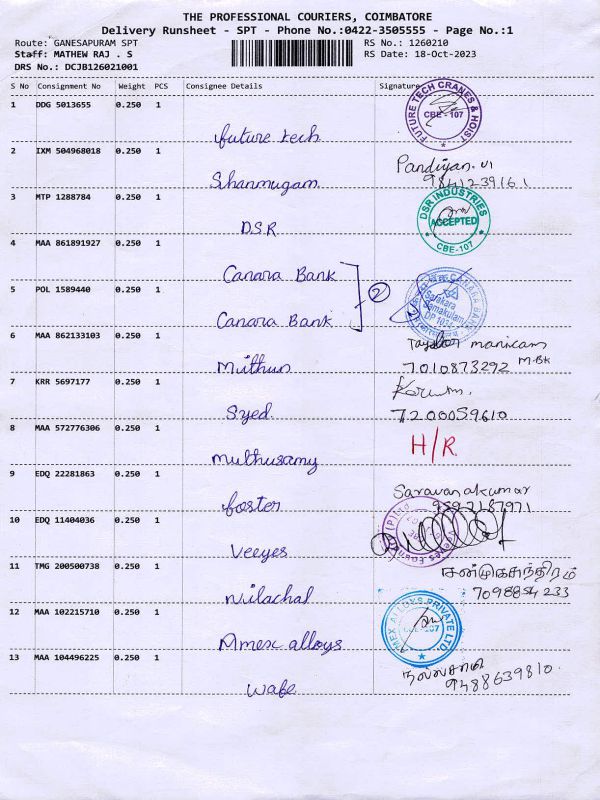 THE PROFESSIONAL COURIERS, COIMBATORE
Delivery Runsheet - SPT - Phone No.:0422-3505555 - Page No.:1
Route: GANESAPURAM SPT RS No.: 1260210
Staff: MATHEW RAJ . S RS Date: 18-Oct-2023
DRS No.: DCJB126021001
S No Consignment No Weight PCS Consignee Details Signature
1 DDG 5013655 0.250 1
future tech
FUTURE TECH CRANES & HOIST
CBE - 107
2 IXM 504968018 0.250 1
Shanmugam
Pandiyan. VI
9841239161
3 MTP 1288784 0.250 1
D.S.R.
DSR INDUSTRIES
ACCEPTED
CBE-107
4 MAA 861891927 0.250 1
Canara Bank
5 POL 1589440 0.250 1
Canara Bank
2
CANARA BANK
Sarkara
Samakulam
DP 1034
6 MAA 862133103 0.250 1
Mithun
manicam
7010873292 M.BK
7 KRR 5697177 0.250 1
Syed.
7200059610
8 MAA 572776306 0.250 1
Muthusamy
H/R
9 EDQ 22281863 0.250 1
foster
Saravanakumar
10 EDQ 11404036 0.250 1
Veeyes
Veeyes Foundry (P) Ltd
11 TMG 200500738 0.250 1
Nilachal
சண்முகசுந்திரம்
7098854233
12 MAA 102215710 0.250 1
Amex alloys
AMEX ALLOYS PRIVATE LTD.
CBE-107
13 MAA 104496225 0.250 1
wabe
நல்லசாமி
9488639810.